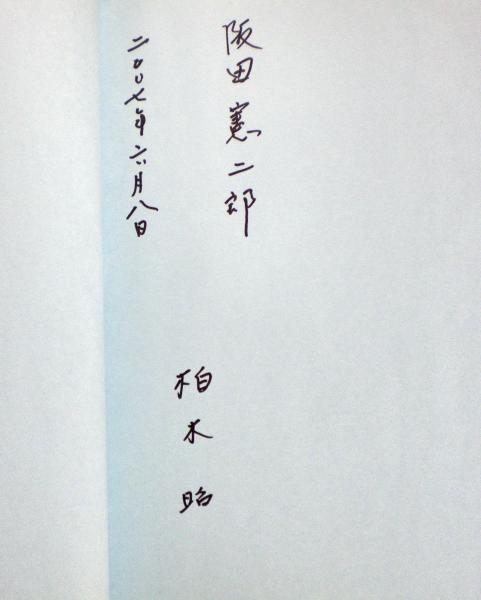 阪田憲二郎
二〇〇七年六月八日
柏木昭